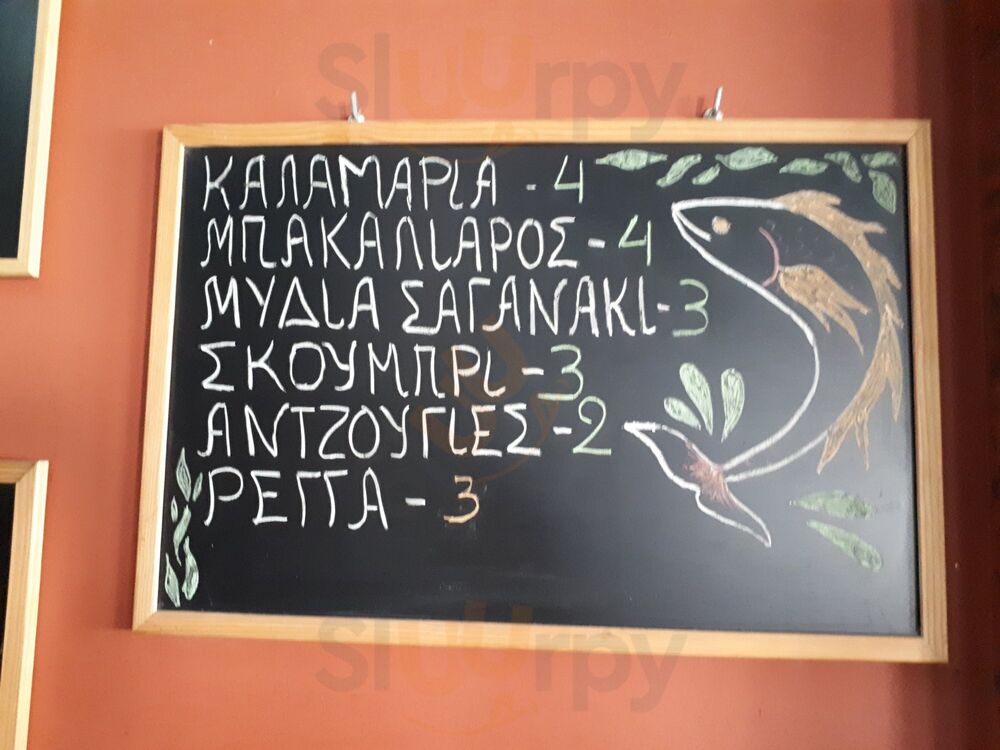 Sluurpy
ΚΑΛΑΜΑΡΙΑ - 4
ΜΠΑΚΑΛΙΑΡΟΣ - 4
ΜΥΔΙΑ ΣΑΓΑΝΑΚΙ - 3
ΣΚΟΥΜΠΡΙ - 3
ΑΝΤΖΟΥΓΙΕΣ - 2
ΡΕΓΓΑ - 3
Sluurpy